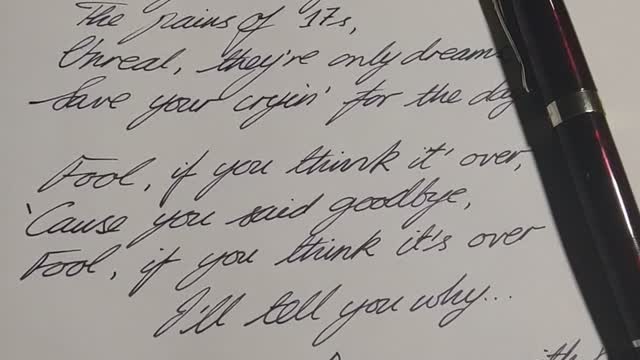 The pains of 17s,
Unreal, they're only dreams
Save your cryin' for the day
Fool, if you think it' over,
'Cause you said goodbye,
Fool, if you think it's over
I'll tell you why...